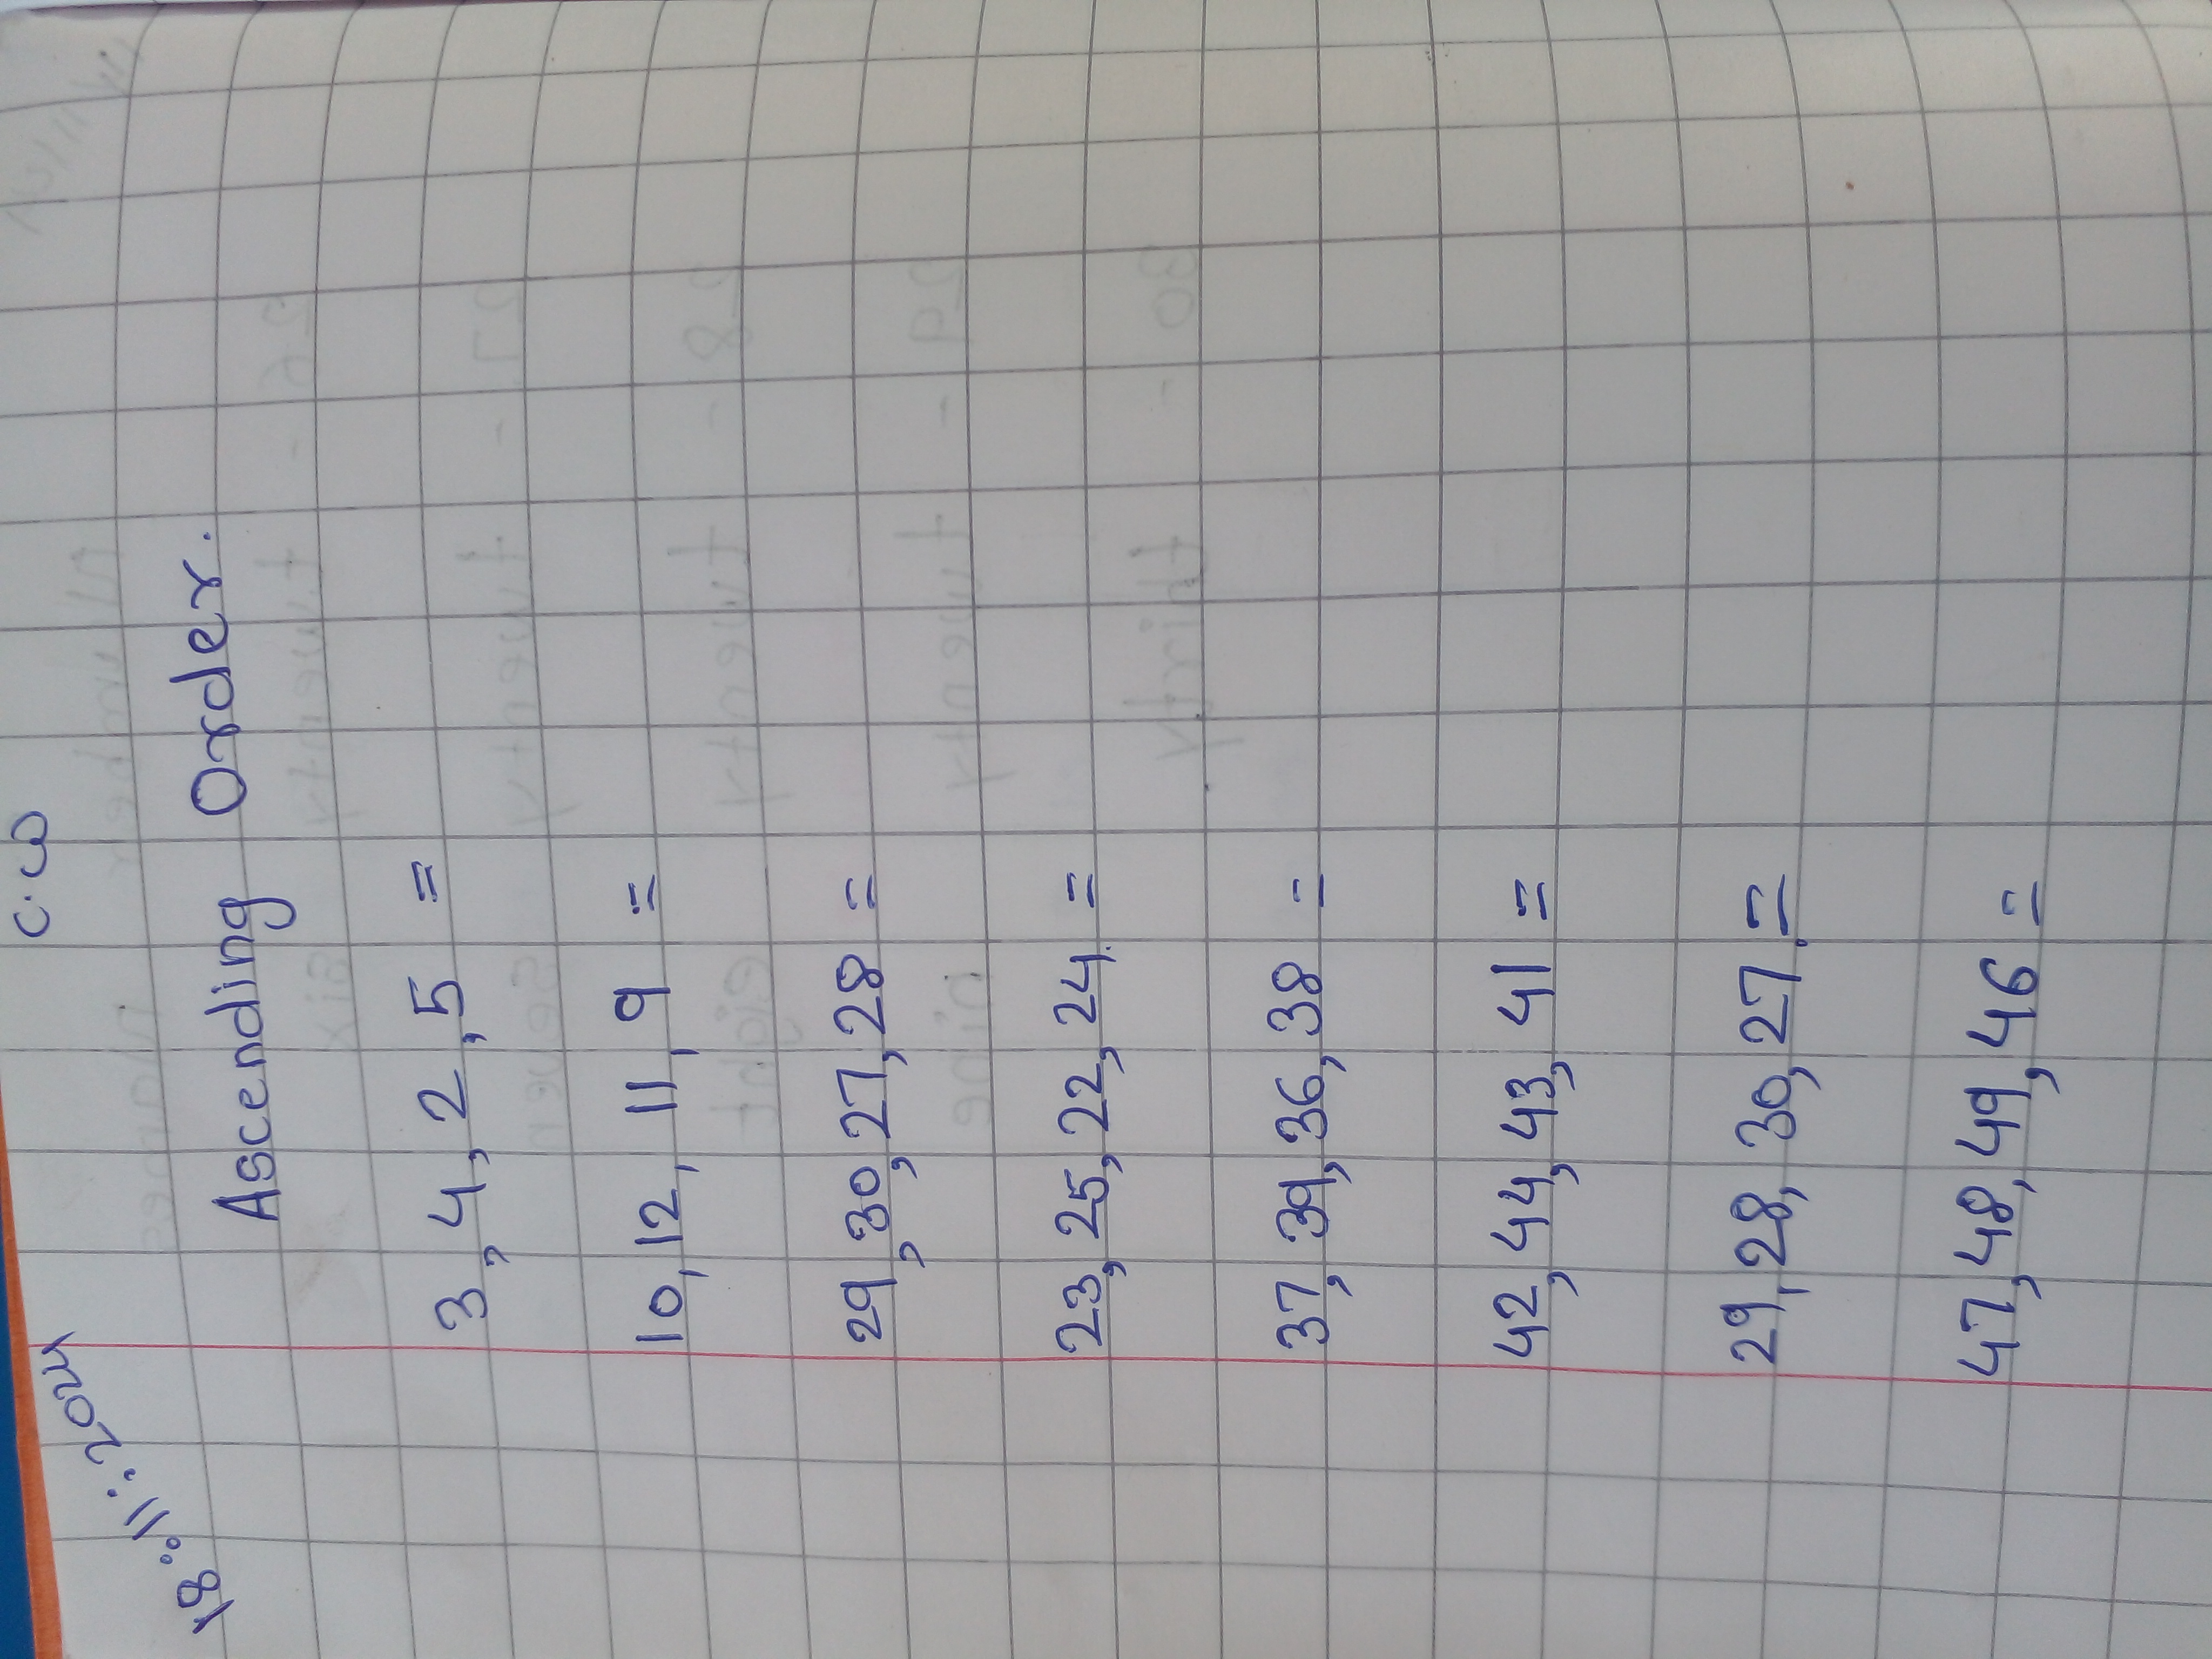 C.W
18:11:2024
Ascending Order.
3, 4, 2, 5 =
10, 12, 11, 9 =
29, 30, 27, 28 =
23, 25, 22, 24 =
37, 39, 36, 38 =
42, 44, 43, 41 =
29, 28, 30, 27. =
47, 48, 49, 46 =